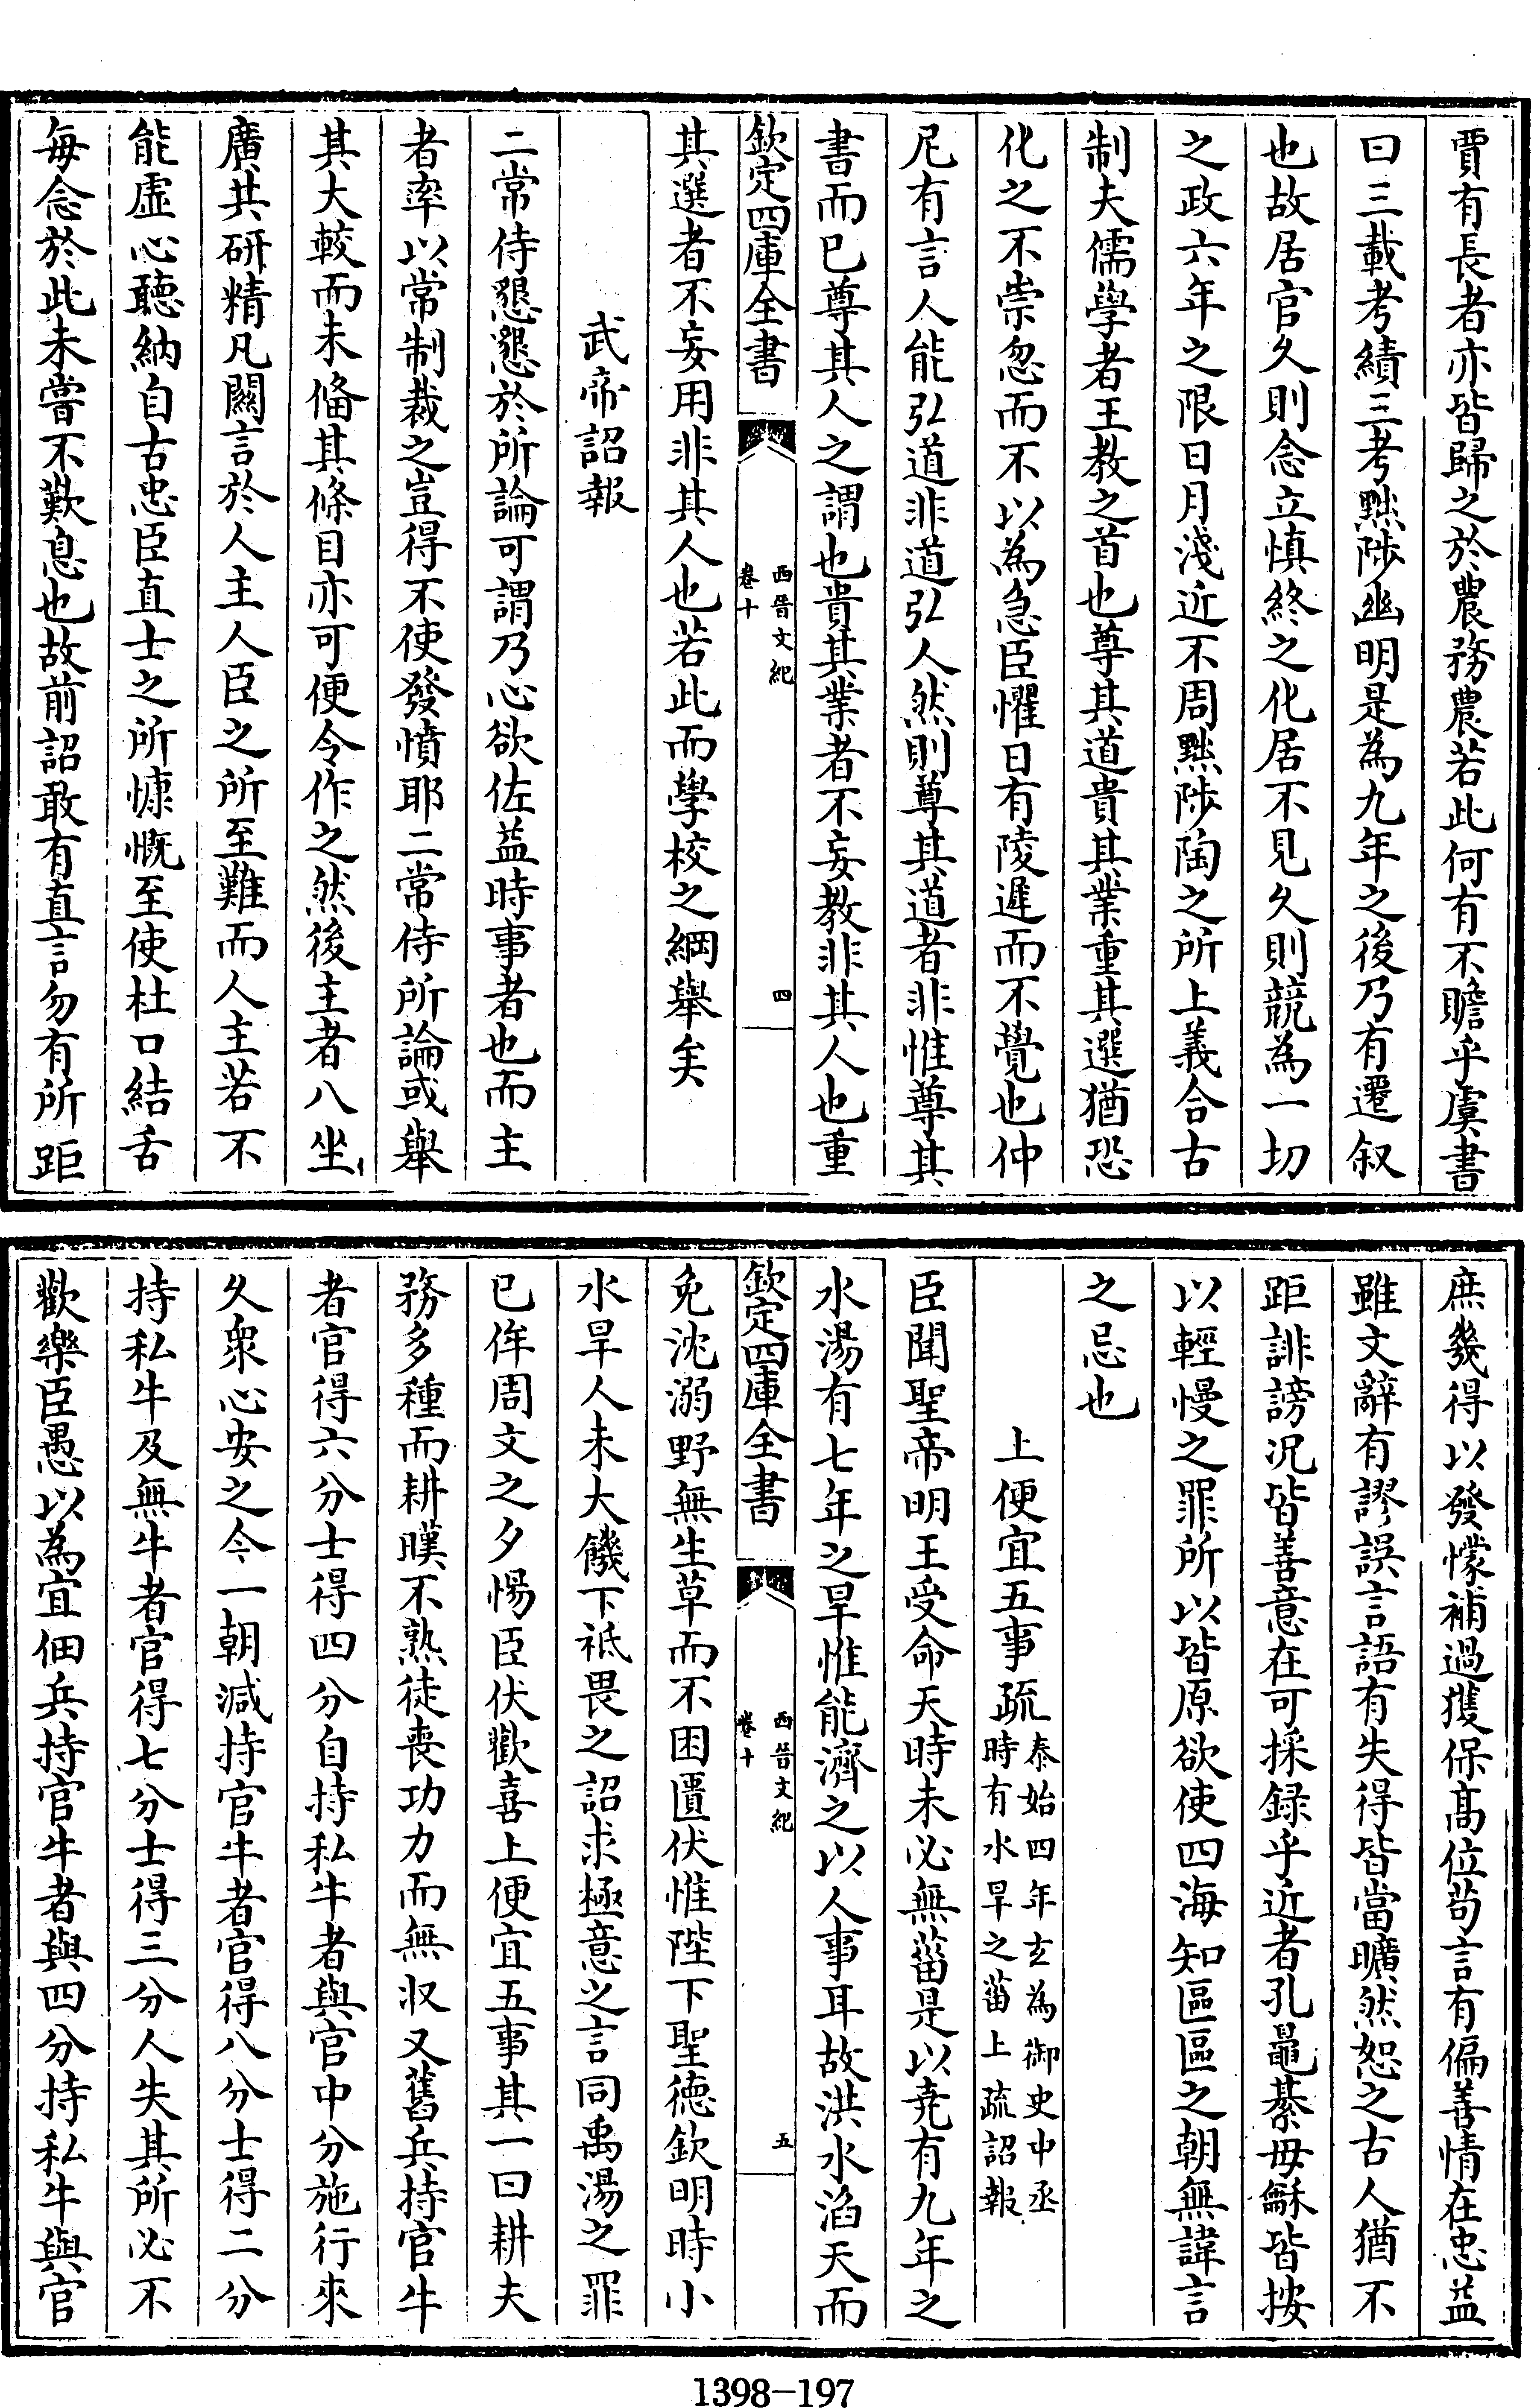 賈有長者亦皆歸之於農務農若此何有不贍乎虞書
曰三載考績三考黜陟幽明是為九年之後乃有遷叙
也故居官久則念立慎終之化居不見久則競為一切
之政六年之限日月淺近不周黜陟陶之所上義合古
制夫儒學者王教之首也尊其道貴其業重其選猶恐
化之不崇忽而不以為急臣懼日有陵遲而不覺也仲
尼有言人能弘道非道弘人然則尊其道者非惟尊其
書而已尊其人之謂也貴其業者不妄教非其人也重
欽定四庫全書
西晉文紀
卷十
四
其選者不妄用非其人也若此而學校之綱舉矣
武帝詔報
二常侍懇懇於所論可謂乃心欲佐益時事者也而主
者率以常制裁之豈得不使發憤耶二常侍所論或舉
其大較而未備其條目亦可便令作之然後主者八坐
廣共研精凡關言於人主人臣之所至難而人主若不
能虛心聽納自古忠臣直士之所慷慨至使杜口結舌
每念於此未嘗不歎息也故前詔敢有直言勿有所距
庶幾得以發懞補過獲保高位苟言有偏善情在忠益
雖文辭有謬誤言語有失得皆當曠然恕之古人猶不
距誹謗况皆善意在可採録乎近者孔鼂綦毋龢皆按
以輕慢之罪所以皆原欲使四海知區區之朝無諱言
之忌也
上便宜五事疏
泰始四年玄為御史中丞
時有水旱之菑上疏詔報
臣聞聖帝明王受命天時未必無菑是以尭有九年之
水湯有七年之旱惟能濟之以人事耳故洪水滔天而
欽定四庫全書
西晉文紀
卷十
五
免沈溺野無生草而不困匱伏惟陛下聖德欽明時小
水旱人未大饑下祗畏之詔求極意之言同禹湯之罪
已侔周文之夕惕臣伏歡喜上便宜五事其一曰耕夫
務多種而耕暵不熟徒喪功力而無収又舊兵持官牛
者官得六分士得四分自持私牛者與官中分施行來
久衆心安之今一朝減持官牛者官得八分士得二分
持私牛及無牛者官得七分士得三分人失其所必不
歡樂臣愚以為宜佃兵持官牛者與四分持私牛與官
1398-197